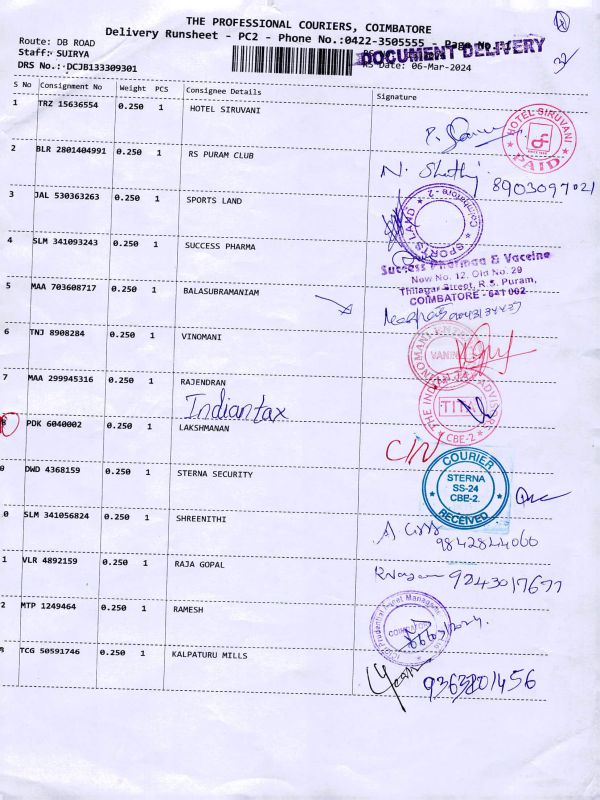 THE PROFESSIONAL COURIERS, COIMBATORE
Delivery Runsheet - PC2 - Phone No.:0422-3505555 - Page No.:1
Route: DB ROAD
Staff: SUIRYA
DRS No.: DCJB133309301
DOCUMENT DELIVERY
RS Date: 06-Mar-2024
S No Consignment No Weight PCS Consignee Details Signature
1 TRZ 15636554 0.250 1 HOTEL SIRUVANI
HOTEL SIRUVANI PAID
2 BLR 2801404991 0.250 1 RS PURAM CLUB
N. Shethy 8903097021
3 JAL 530363263 0.250 1 SPORTS LAND
SPORTS LAND Coimbatore - 2
4 SLM 341093243 0.250 1 SUCCESS PHARMA
Success Pharmaa & Vaccine
New No. 12, Old No. 29
Thilagar Street, R.S. Puram,
COIMBATORE - 641 002
5 MAA 703608717 0.250 1 BALASUBRAMANIAM
6 TNJ 8908284 0.250 1 VINOMANI
7 MAA 299945316 0.250 1 RAJENDRAN
Indian tax
THE INDIAN TAX ADVISER TITA CBE-2
8 PDK 6040002 0.250 1 LAKSHMANAN
C/N
0 DWD 4368159 0.250 1 STERNA SECURITY
COURIER STERNA SS-24 CBE-2. RECEIVED
0 SLM 341056824 0.250 1 SHREENITHI
9842844060
1 VLR 4892159 0.250 1 RAJA GOPAL
9243017677
2 MTP 1249464 0.250 1 RAMESH
3 TCG 50591746 0.250 1 KALPATURU MILLS
9363201456